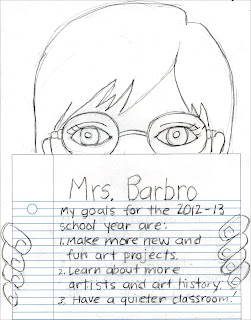 Mrs. Barbro
My goals for the 2012-13
school year are:
1. Make more new and
fun art projects.
2. Learn about more
artists and art history.
3. Have a quieter classroom.